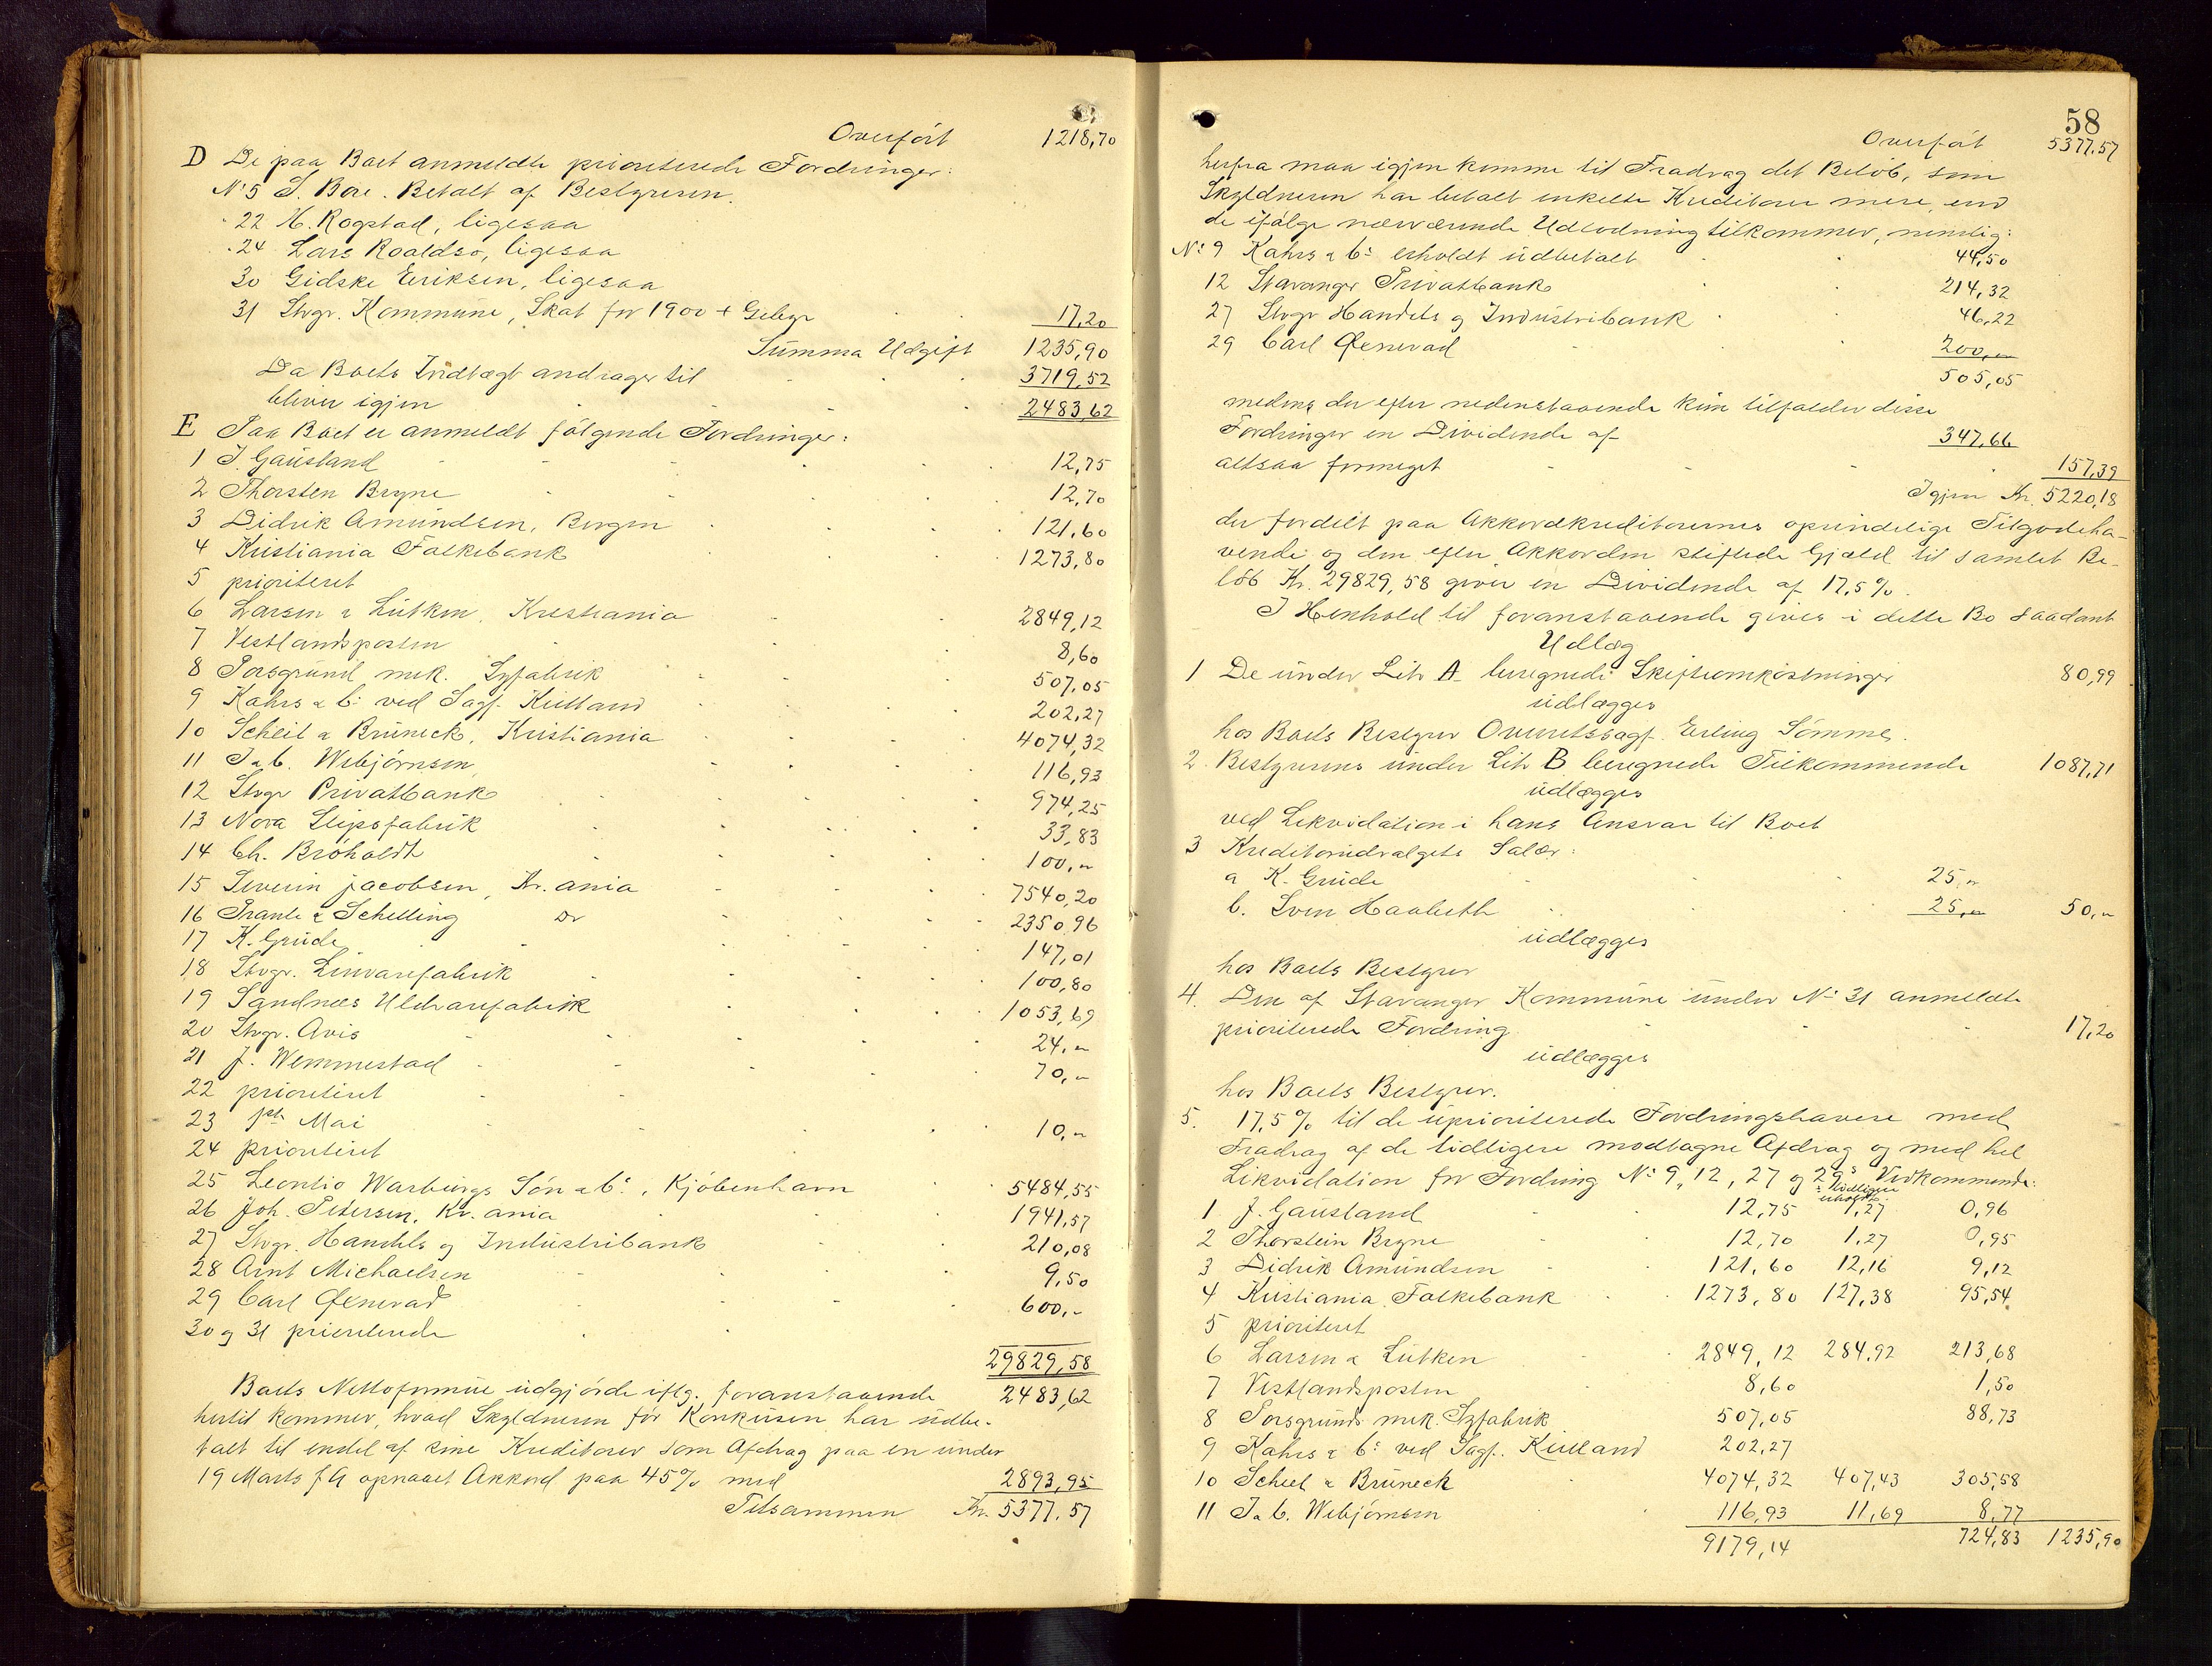 Overført 1218,70
D De paa Boet anmeldte prioriterede Fordringer:
No 5 S. Bore. Betalt af Bestyreren.
" 22 N. Rogstad, ligesaa
" 24 Lars Roaldsø, ligesaa
30 Gidske Eeriksen, ligesaa
31 Stvgr. Kommune, Skat for 1900 + Gebyr 17,20
Summa Udgift 1235,90
Da Boets Indtægt andrager til 3719,52
bliver igjen 2483,62
E Paa Boet er anmeldt følgende Fordringer:
1 J. Gausland 12,75
2 Thorsten Bryne 12,70
3 Didrik Amundsen, Bergen 121,60
4 Kristiania Folkebank 1273,80
5 prioriteret
6 Larsen & Lütken, Kristiania 2849,12
7 Vestlandsposten 8,60
8 Porsgrund mek. Syfabrik 507,05
9 Kahrs & Co ved Sagf. Kielland 202,27
10 Scheel & Bruneck, Kristiania 4074,32
11 I & C. Webjørnsen, 116,93
12 Stvgr Privatbank 974,25
13 Nora Slipsfabrik 33,83
14 Ch. Brøholdt 100,"
15 Severin Jacobsen, Kr.ania 7540,20
16 Prante & Schelling Do 2350,96
17 K. Grude 147,01
18 Stvgr. Linvarefabrik 100,80
19 Sandnes Uldvarefabrik 1053,69
20 Stvgr. Avis 24,"
21 J. Wemmestad 70,"
22 prioriteret
23 1ste Mai 10,"
24 prioriteret
25 Leontio Warburgs Søn & Co, Kjøbenhavn 5484,55
26 Joh. Petersen, Kr.ania 1941,57
27 Stvgr. Handels og Industribank 210,08
28 Arnt Michaelsen 9,50
29 Carl Øenevad 600,"
30 og 31 prioriterede
29829,58
Boets Nettoformue udgjørde iflg. foranstaaende 2483,62
hertil kommer, hvad Skyldneren før Konkursen har udbe-
talt til endel af sine Kreditorer som Afdrag paa en under
19 Marts f A opnaaet Akkord paa 45% med 2893,95
Tilsammen Kr. 5377,57
58
Overført 5377,57
herfra maa igjen komme til Fradrag det Beløb, som
Skyldneren har betalt enkelte Kreditorer mere, end
de ifølge nærværende Udlodning tilkommer, nemlig:
No 9 Kahrs & Co erholdt udbetalt 44,50
12 Stavanger Privatbank 214,32
27 Stvgr Handels og Industribank 46,22
29 Carl Øenevad 200,"
505,05
medens der efter nedenstaaende kun tilfalder disse
Fordringer en Dividende af 347,66
altsaa formeget 157,39
Igjen Kr. 5220,18
der fordelt paa Akkordkreditorernes oprindelige Tilgodeha-
vende og den efter Akkorden stiftede Gjæld til samlet Be-
løb Kr. 29829,58 giver en Dividende af 17,5%.
I Henhold til foranstaaende gives i dette Bo saadant
Udlæg
1 De under Litr A beregnede Skifteomkostninger 80,99
udlægges
hos Boets Bestyrer Overretssagf. Erling Sømme.
2. Bestyrerens under Litr B beregnede Tilkommende 1087,71
udlægges
ved Likvidation i hans Ansvar til Boet
3 Kreditorudvalgets Salær:
a K. Grude 25,"
b. Sven Haabeth 25,"  50,"
udlægges
hos Boets Bestyrer
4. Den af Stavanger Kommune under No 31 anmeldte
prioriterede Fordring 17,20
udlægges
hos Boets Bestyrer.
5. 17,5% til de uprioriterede Fordringshavere med
Fradrag af de tidligere modtagne Afdrag og med hel
Likvidation for Fordring No 9, 12, 27 og 29s Vedkommende:
tidligere erholdt
1 J. Gausland 12,75 1,27 0,96
2 Thorstein Bryne 12,70 1,27 0,95
3 Didrik Amundsen 121,60 12,16 9,12
4 Kristiania Folkebank 1273,80 127,38 95,54
5 prioriteret
6 Larsen & Lütken 2849,12 284,92 213,68
7 Vestlandsposten 8,60 1,50
8 Porsgrunds mek. Syfabrik 507,05 88,73
9 Kahrs & Co ved Sagf. Kielland 202,27
10 Scheel & Bruneck 4074,32 407,43 305,58
11 I & C. Webjørnsen 116,93 11,69 8,77
9179,14 724,83 1235,90